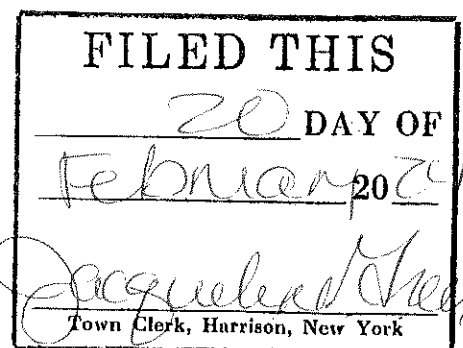 FILED THIS
20 DAY OF
February 20
Town Clerk, Harrison, New York